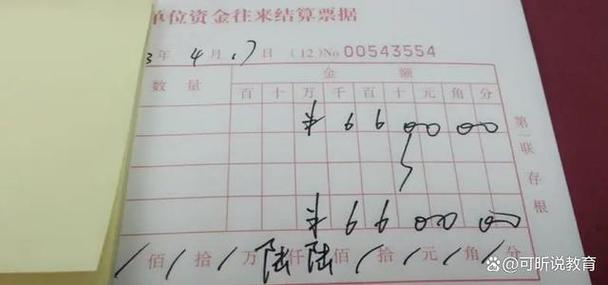 单位资金往来结算票据
3 年 4 月 17 日 (12)No 00543554
数 量 金 额
百 十 万 千 百 十 元 角 分
¥ 6 6 0 0 0 0
¥ 6 6 0 0 0 0
/ 佰 / 拾 / 万 陆 仟 陆 佰 / 拾 / 元 / 角 / 分
第一联 存根
可昕说教育